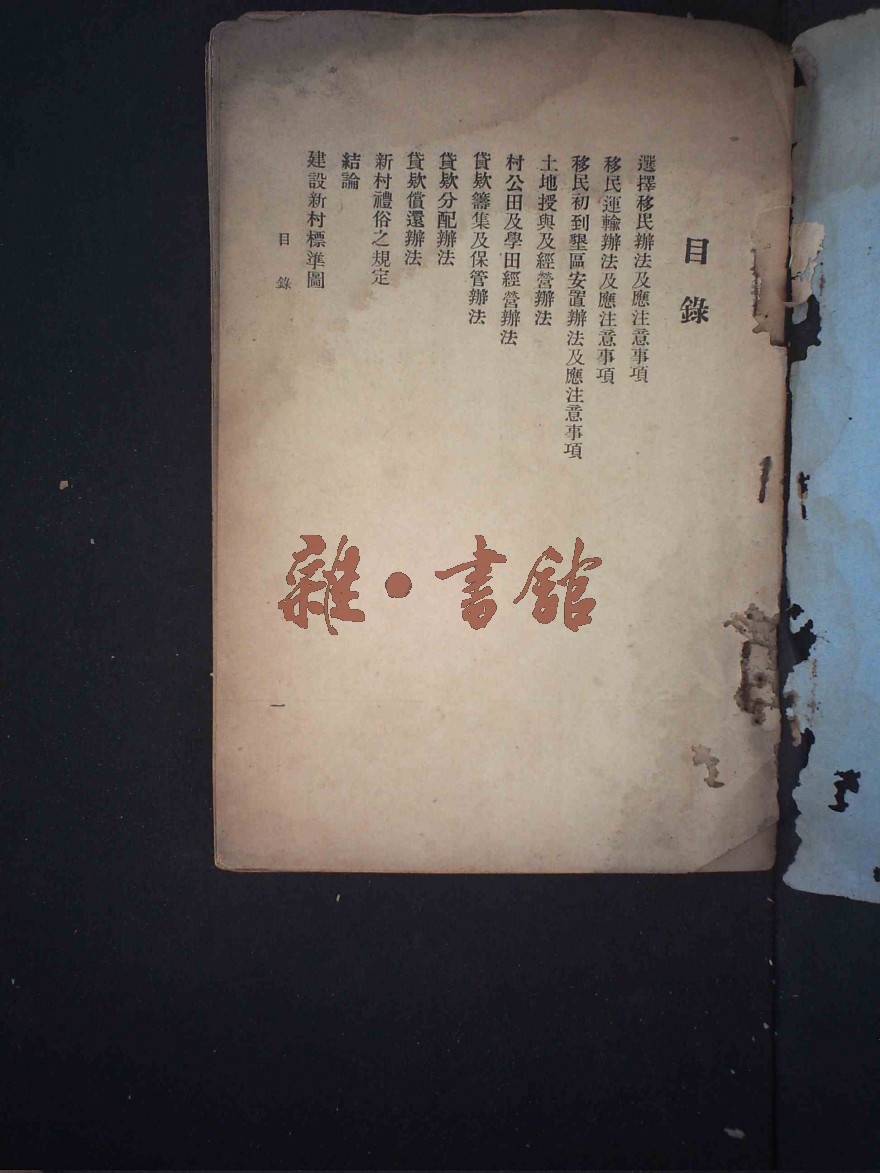 目錄
選擇移民辦法及應注意事項
移民運輸辦法及應注意事項
移民初到墾區安置辦法及應注意事項
土地授與及經營辦法
村公田及學田經營辦法
貸欵籌集及保管辦法
貸欵分配辦法
貸欵償還辦法
新村禮俗之規定
結論
建設新村標準圖
目錄
一
雜·書館